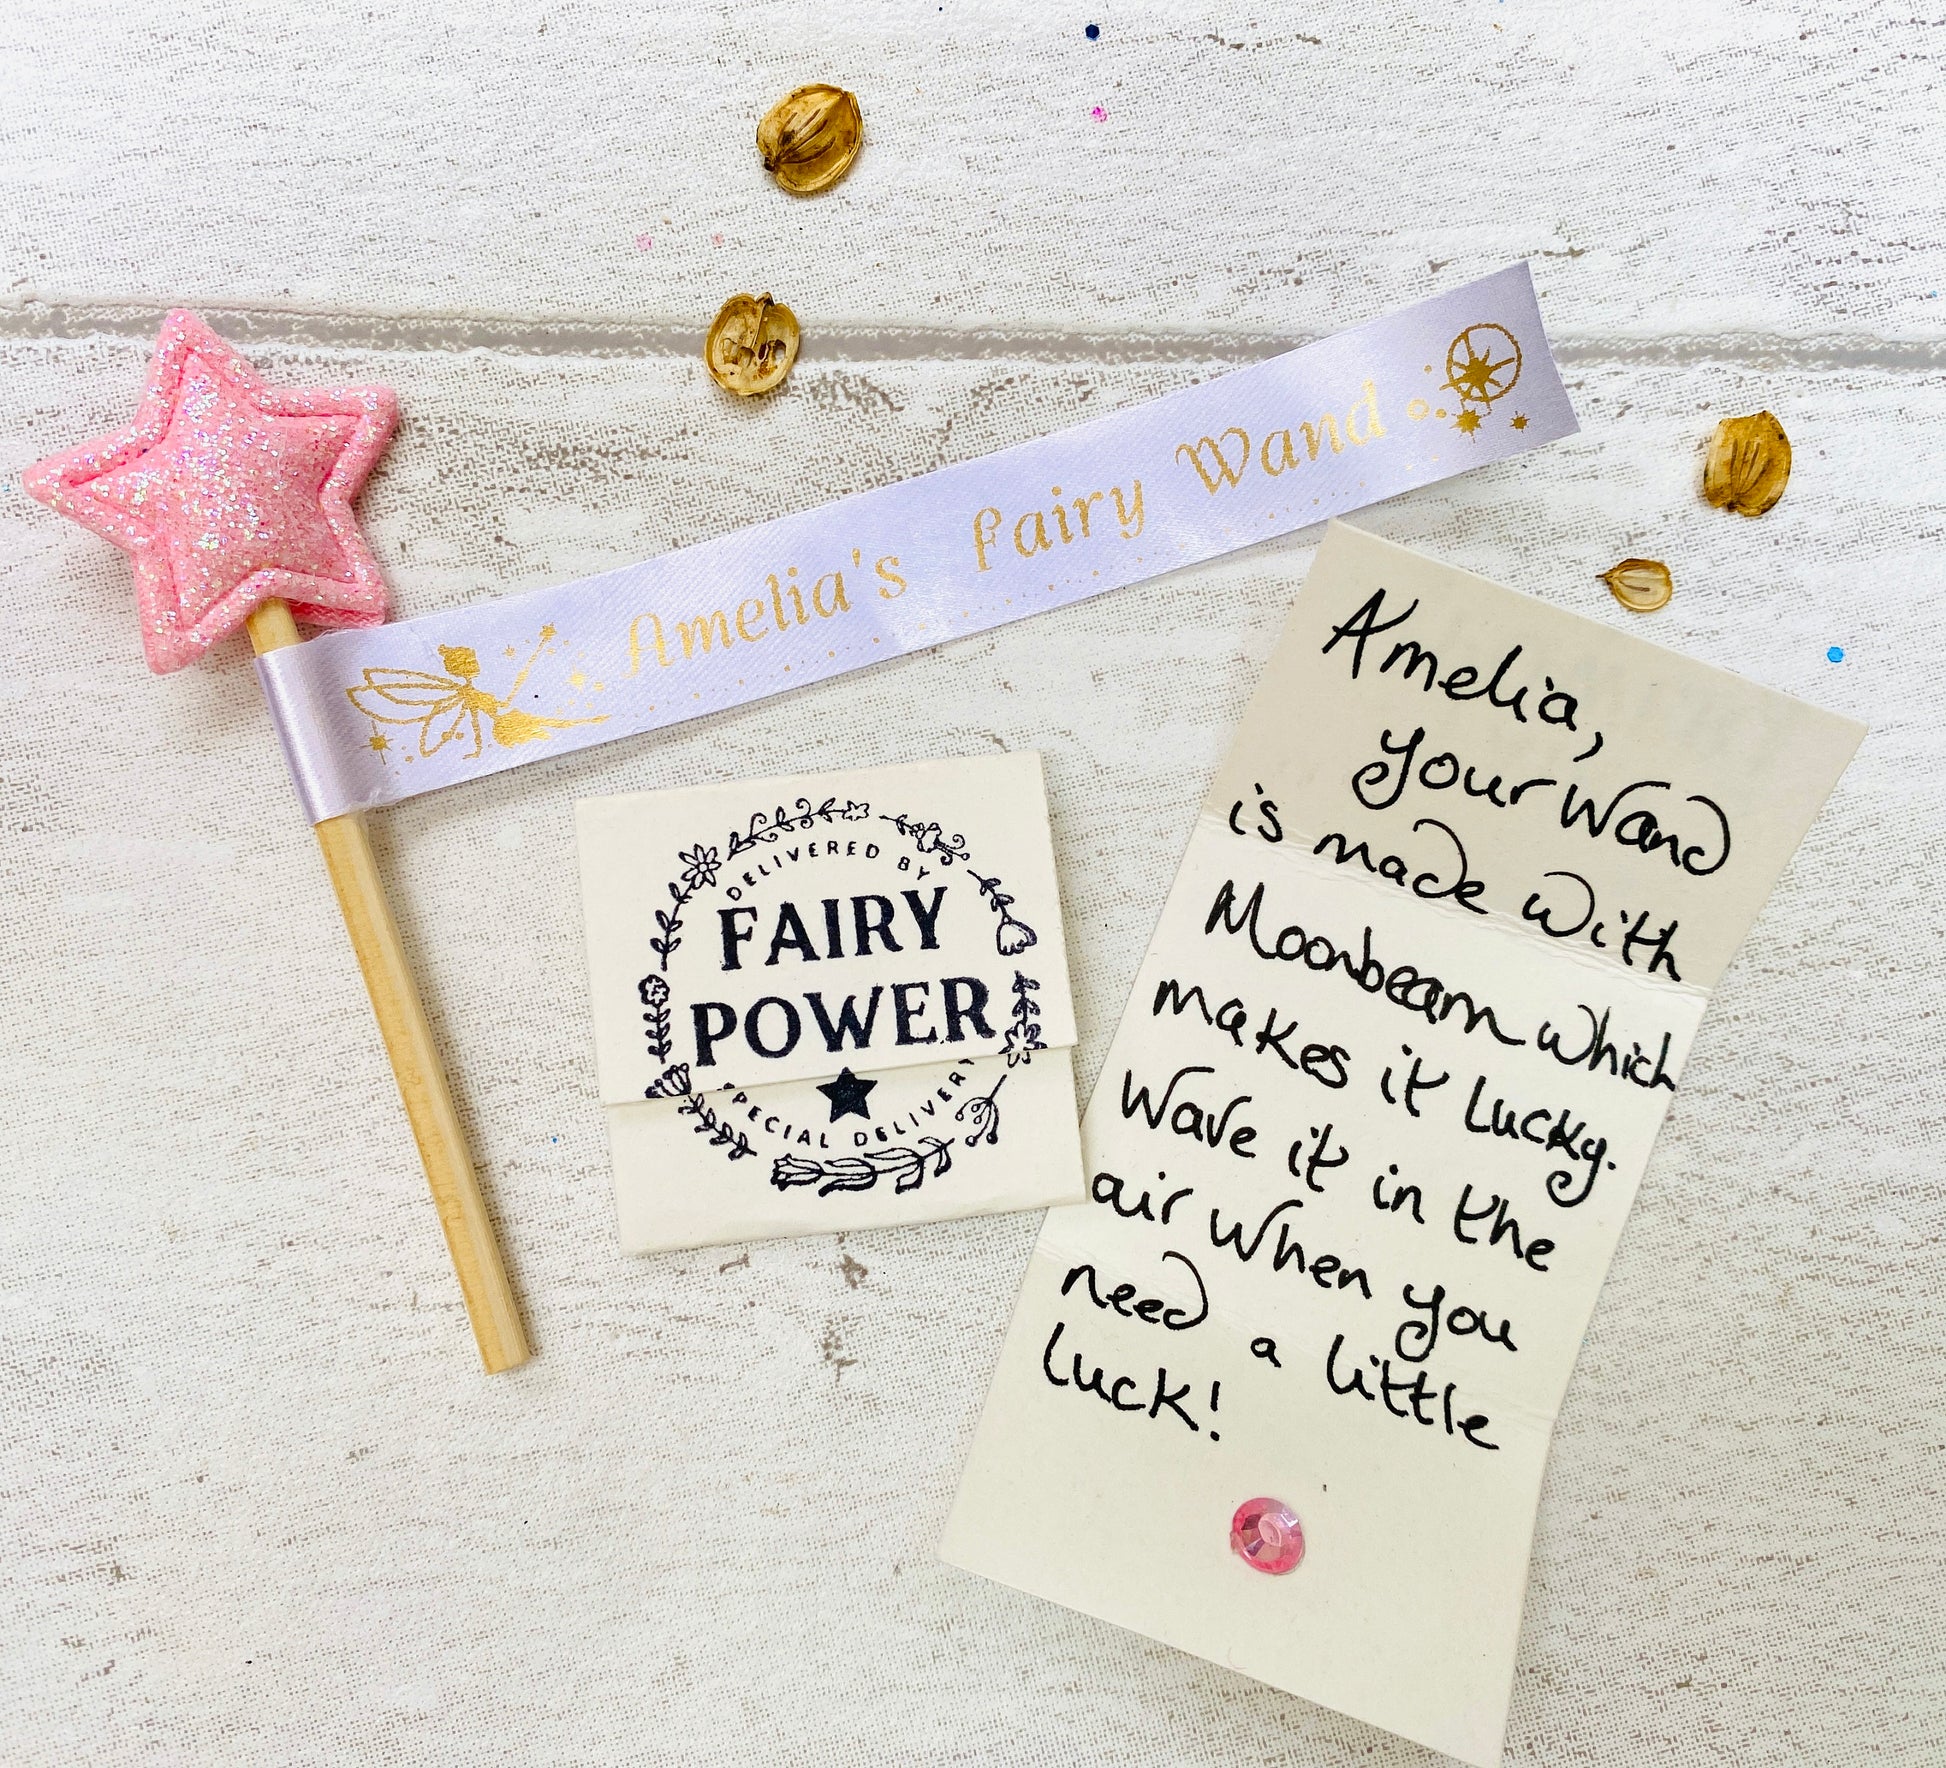 Amelia's Fairy Wand
DELIVERED BY
FAIRY
POWER
SPECIAL DELIVERY
Amelia,
your wand
is made with
Moonbeam which
makes it lucky.
Wave it in the
air when you
need a little
luck!